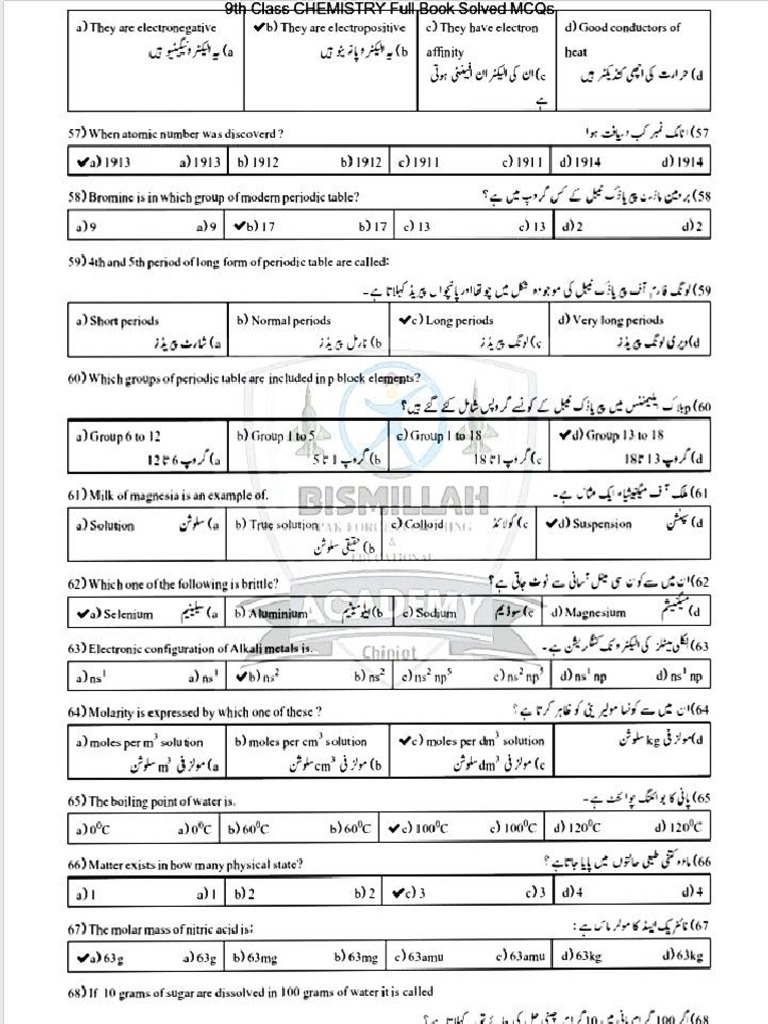 9th Class CHEMISTRY Full Book Solved MCQs
a) They are electronegative ✔b) They are electropositive c) They have electron d) Good conductors of
affinity heat
یہ الیکٹرونیگیٹیو ہیں (a یہ الیکٹروپازیٹیو ہیں (b ان کی الیکٹران افینٹی ہوتی (c حرارت کی اچھی کنڈیکٹر ہیں (d
ہے
57) When atomic number was discoverd ? اٹامک نمبر کب دریافت ہوا (57
✔a) 1913 a) 1913 b) 1912 b) 1912 c) 1911 c) 1911 d) 1914 d) 1914
58) Bromine is in which group of modern periodic table? برومین ماڈرن پیریاڈک ٹیبل کے کس گروپ میں ہے؟ (58
a) 9 a) 9 ✔b) 17 b) 17 c) 13 c) 13 d) 2 d) 2
59) 4th and 5th period of long form of periodic table are called:
لونگ فارم آف پیریاڈک ٹیبل کی موجودہ شکل میں چوتھا اور پانچواں پیریڈ کہلاتا ہے۔ (59
a) Short periods b) Normal periods ✔c) Long periods d) Very long periods
شارٹ پیریڈز (a نارمل پیریڈز (b لونگ پیریڈز (c ویری لونگ پیریڈز (d
60) Which groups of periodic table are included in p block elements?
p بلاک ایلیمنٹس میں پیریاڈک ٹیبل کے کونسے گروپس شامل کئے گئے ہیں؟ (60
a) Group 6 to 12 b) Group 1 to 5 c) Group 1 to 18 ✔d) Group 13 to 18
گروپ 6 تا 12 (a گروپ 1 تا 5 (b گروپ 1 تا 18 (c گروپ 13 تا 18 (d
61) Milk of magnesia is an example of. ملک آف میگنیشیا ایک مثال ہے۔ (61
BISMILLAH
a) Solution سلوشن (a b) True solution c) Colloid کولائڈ (c ✔d) Suspension سسپنشن (d
حقیقی سلوشن (b
&
EDUCATIONAL
62) Which one of the following is brittle? ان میں سے کون سی میٹل آسانی سے ٹوٹ جاتی ہے؟ (62
✔a) Selenium سیلینیم (a b) Aluminium ایلومینیم (b c) Sodium سوڈیم (c d) Magnesium میگنیشیم (d
ACADEMY
63) Electronic configuration of Alkali metals is. الکلی میٹلز کی الیکٹرونک کنفگریشن ہے۔ (63
Chiniot
a) ns¹ a) ns¹ ✔b) ns² b) ns² c) ns² np⁵ c) ns² np⁵ d) ns¹ np d) ns¹ np
64) Molarity is expressed by which one of these ? ان میں سے کونسا مولیریٹی کو ظاہر کرتا ہے ؟ (64
a) moles per m³ solution b) moles per cm³ solution ✔c) moles per dm³ solution مولز فی kg سلوشن (d
مولز فی m³ سلوشن (a مولز فی cm³ سلوشن (b مولز فی dm³ سلوشن (c
65) The boiling point of water is. پانی کا بوائلنگ پوائنٹ ہے۔ (65
a) 0⁰C a) 0⁰C b) 60⁰C b) 60⁰C ✔c) 100⁰C c) 100⁰C d) 120⁰C d) 120⁰C
66) Matter exists in how many physical state? مادہ کتنی طبعی حالتوں میں پایا جاتا ہے؟ (66
a) 1 a) 1 b) 2 b) 2 ✔c) 3 c) 3 d) 4 d) 4
67) The molar mass of nitric acid is: نائٹرک ایسڈ کا مولر ماس ہے : (67
✔a) 63g a) 63g b) 63mg b) 63mg c) 63amu c) 63amu d) 63kg d) 63kg
68) If 10 grams of sugar are dissolved in 100 grams of water it is called